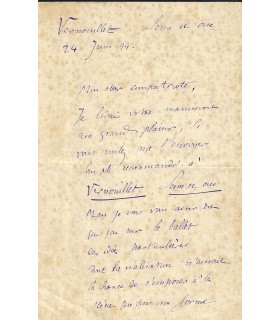 Vernouillet Seine et oise
24 Juin 99.
Mon cher compatriote,
Je lirai votre manuscrit
avec grand plaisir, si
vous voulez me l'envoyer
en pli recommandé à
Vernouillet Seine et oise
Mais je dois vous avouer
que j'ai sur le ballet
des idées particulières
dont la réalisation
la chance de s'imposer à la
scène